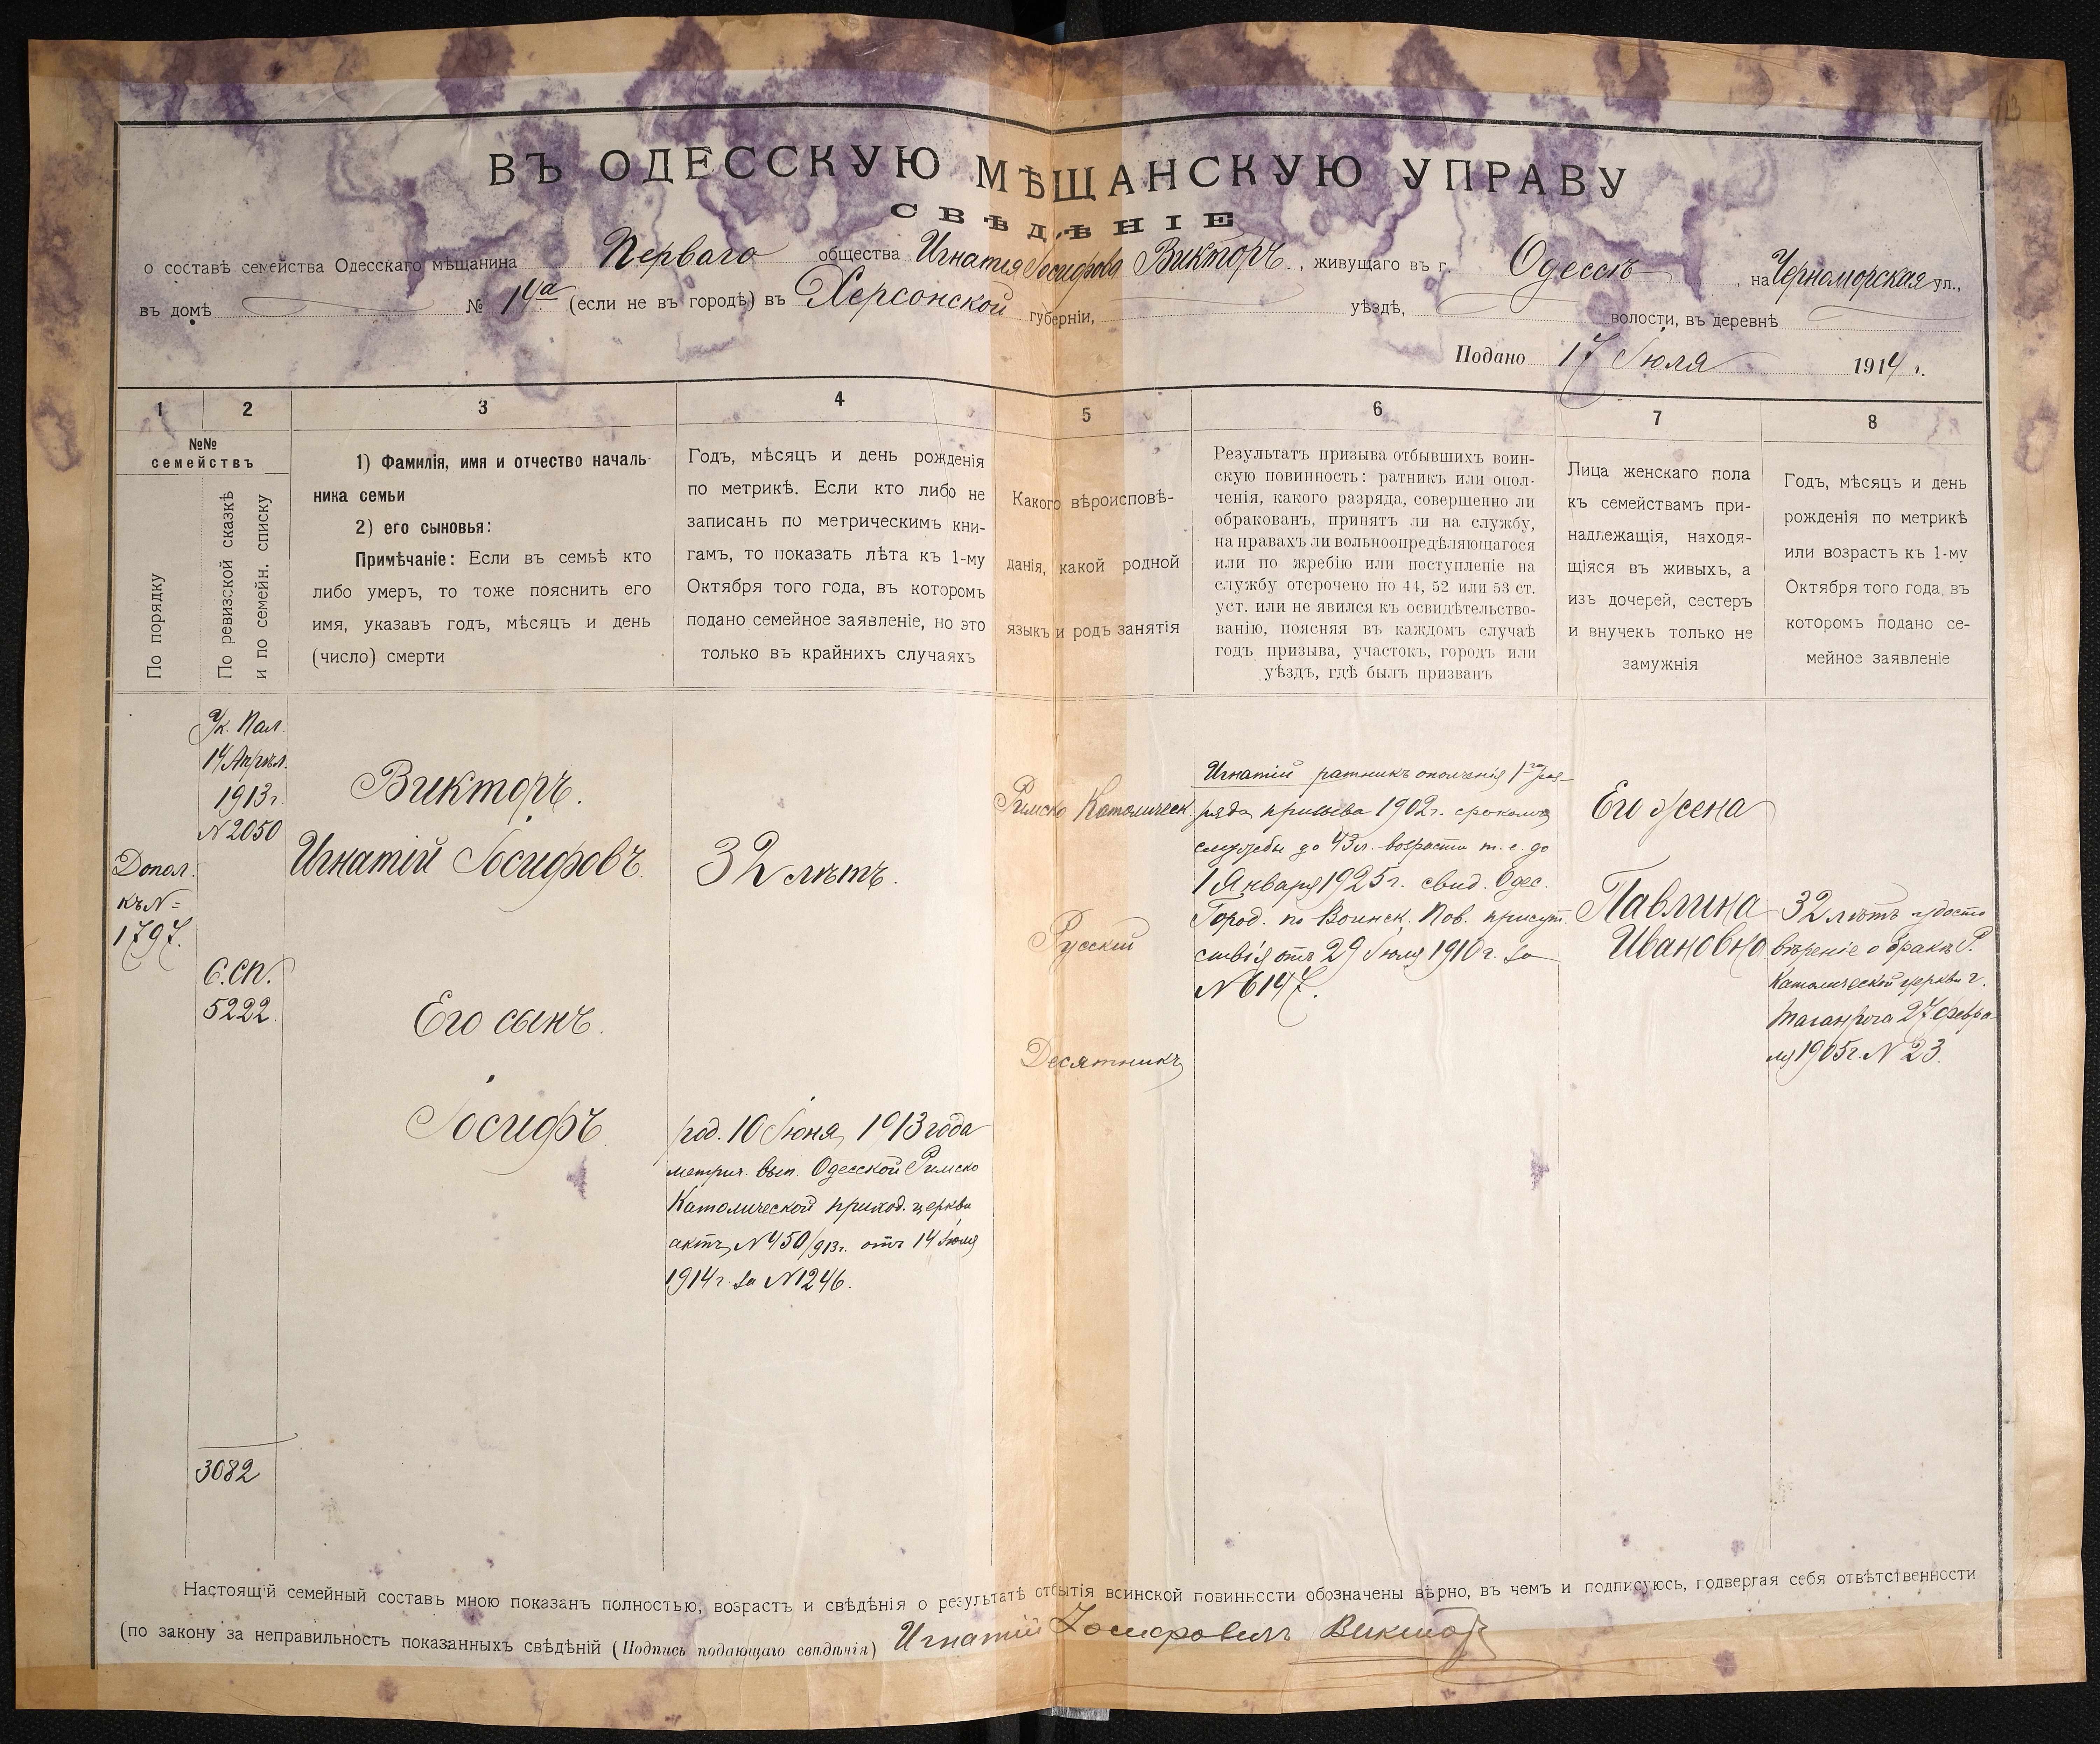 ВЪ ОДЕССКУЮ МѢЩАНСКУЮ УПРАВУ
СВѢДѢНІЕ
о составѣ семейства Одесскаго мѣщанина Перваго общества Игнатія Іосифова Викторъ, живущаго въ г. Одессѣ, на Черноморская ул.,
въ домѣ № 14а (если не въ городѣ) въ Херсонской губерніи, уѣздѣ, волости, въ деревнѣ
Подано 17 Іюля 1914 г.
1
2
3
4
5
6
7
8
№№
семействъ
По порядку
По ревизской сказкѣ
и по семейн. списку
1) Фамилія, имя и отчество началь-
ника семьи
2) его сыновья:
Примѣчаніе: Если въ семьѣ кто
либо умеръ, то тоже пояснить его
имя, указавъ годъ, мѣсяцъ и день
(число) смерти
Годъ, мѣсяцъ и день рожденія
по метрикѣ. Если кто либо не
записанъ по метрическимъ кни-
гамъ, то показать лѣта къ 1-му
Октября того года, въ которомъ
подано семейное заявленіе, но это
только въ крайнихъ случаяхъ
Какого вѣроисповѣ-
данія, какой родной
языкъ и родъ занятія
Результатъ призыва отбывшихъ воин-
скую повинность: ратникъ или опол-
ченія, какого разряда, совершенно ли
обракованъ, принятъ ли на службу,
на правахъ ли вольноопредѣляющагося
или по жребію или поступленіе на
службу отсрочено по 44, 52 или 53 ст.
уст. или не явился къ освидѣтельство-
ванію, поясняя въ каждомъ случаѣ
годъ призыва, участокъ, городъ или
уѣздъ, гдѣ былъ призванъ
Лица женскаго пола
къ семействамъ при-
надлежащія, находя-
щіяся въ живыхъ, а
изъ дочерей, сестеръ
и внучекъ только не
замужнія
Годъ, мѣсяцъ и день
рожденія по метрикѣ
или возрастъ къ 1-му
Октября того года, въ
которомъ подано се-
мейное заявленіе
Допол.
къ №
1797.
Ук. Пал.
14 Апрѣл.
1913 г.
№ 2050
С. сп.
5222.
3082
Викторъ.
Игнатій Іосифовъ.
Его сынъ.
Іосифъ
32 лѣтъ.
род. 10 Іюня 1913 года
метрич. вып. Одесской Римско
Католической приход. церкви
актъ № 450/913 г. отъ 14 Іюля
1914 г. за № 1246.
Римско Католическ.
Русскій
Десятникъ
Игнатій ратникъ ополченія 1го раз-
ряда призыва 1902 г. срокомъ
службы до 43 л. возраста т. е. до
1 Января 1925 г. свид. Одес.
Город. по Воинск. Пов. присут-
ствія отъ 29 Іюля 1910 г. за
№ 6147.
Его жена
Павлина
Ивановна
32 лѣтъ удосто
вѣреніе о бракѣ Р.
Католической церкви г.
Таганрога 27 Февра-
ля 1905 г. № 23.
Настоящій семейный составъ мною показанъ полностью, возрастъ и свѣдѣнія о результатѣ отбытія воинской повинности обозначены вѣрно, въ чемъ и подписуюсь, подвергая себя отвѣтственности
(по закону за неправильность показанныхъ свѣдѣній (Подпись подающаго свѣдѣнія) Игнатій Іосифовичъ Викторъ